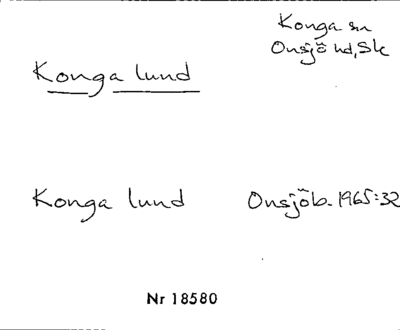 Konga sn
Onsjö hd, Sk
Konga lund
Konga lund Onsjöb. 1965:32
Nr 18580